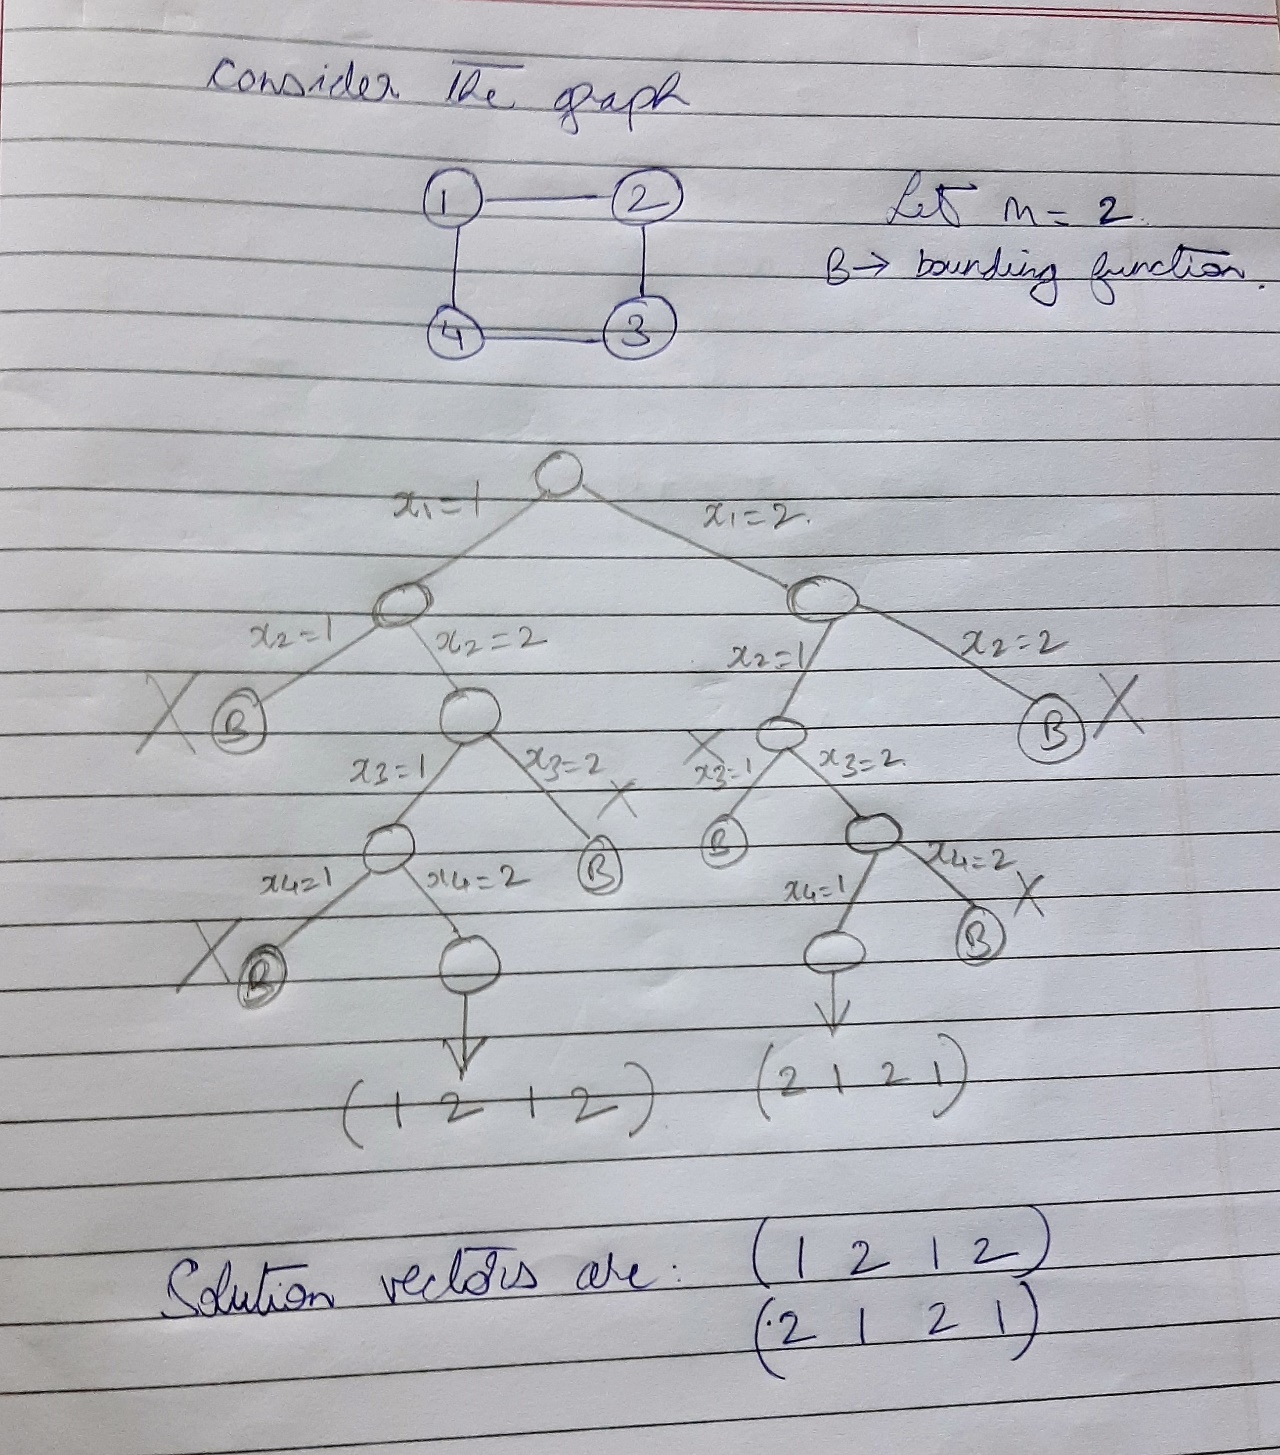 Consider the graph
1 2
Let m = 2.
B → bounding function.
4 3
x₁=1 x₁=2.
x₂=1 x₂=2 x₂=1 x₂=2
X B B X
x₃=1 x₃=2 X x₃=1 x₃=2
X
B B
x₄=1 x₄=2 x₄=1 x₄=2
X B B X
(1 2 1 2) (2 1 2 1)
Solution vectors are: (1 2 1 2)
(2 1 2 1)